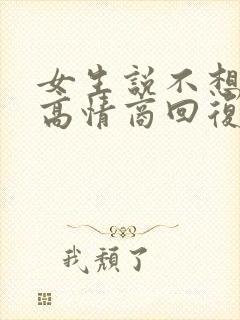 女生説不想
高情商回復
我頹了